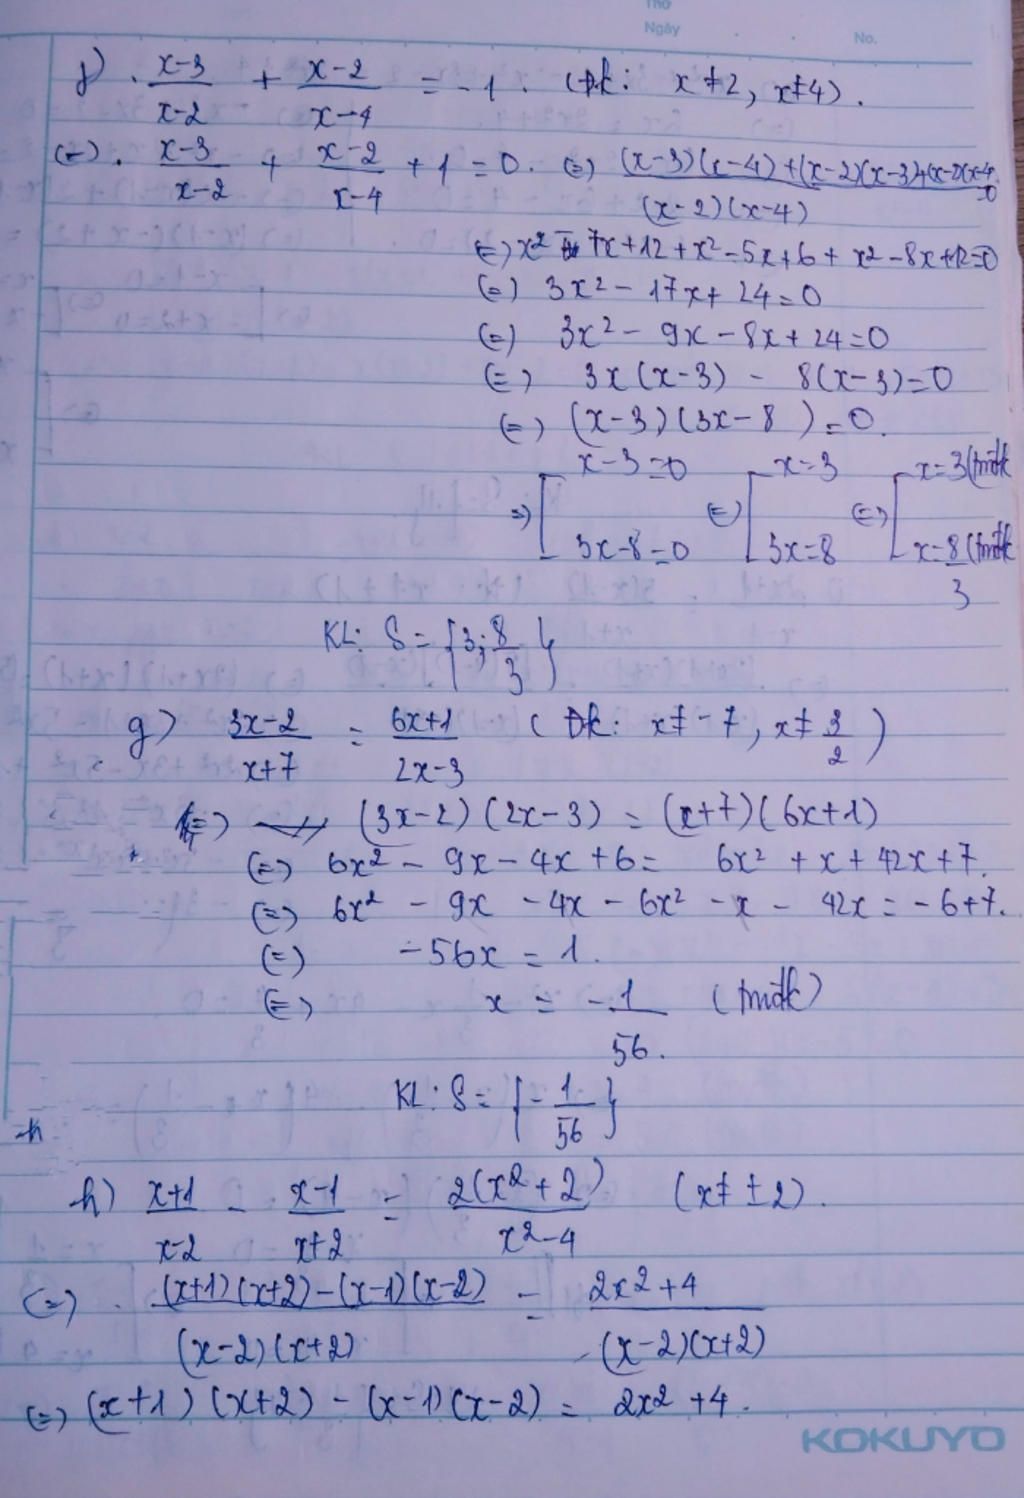 Thứ
Ngày . . No.
f) . \frac{x-3}{x-2} + \frac{x-2}{x-4} = -1 . (Đk: x ≠ 2, x ≠ 4).
(=). \frac{x-3}{x-2} + \frac{x-2}{x-4} + 1 = 0. (=) \frac{(x-3)(x-4)+(x-2)(x-3)+(x-2)(x-4)}{(x-2)(x-4)} = 0
(=) x² - 7x + 12 + x² - 5x + 6 + x² - 8x + 12 = 0
(=) 3x² - 17x + 24 = 0
(=) 3x² - 9x - 8x + 24 = 0
(=) 3x(x-3) - 8(x-3) = 0
(=) (x-3)(3x-8) = 0.
=) [ x-3=0 (=) [ x=3 (=) [ x=3 (tmđk
3x-8=0 3x=8 x=\frac{8}{3} (tmđk
KL: S = {3; \frac{8}{3}}
g) \frac{3x-2}{x+7} = \frac{6x+1}{2x-3} (Đk: x ≠ -7, x ≠ \frac{3}{2})
(=) (3x-2)(2x-3) = (x+7)(6x+1)
(=) 6x² - 9x - 4x + 6 = 6x² + x + 42x + 7.
(=) 6x² - 9x - 4x - 6x² - x - 42x = -6+7.
(=) -56x = 1.
(=) x = \frac{-1}{56.} (tmđk)
KL: S = {-\frac{1}{56}}
h) \frac{x+1}{x-2} - \frac{x-1}{x+2} = \frac{2(x²+2)}{x²-4} (x ≠ ±2).
(=) . \frac{(x+1)(x+2)-(x-1)(x-2)}{(x-2)(x+2)} = \frac{2x²+4}{(x-2)(x+2)}
(=) (x+1)(x+2) - (x-1)(x-2) = 2x² + 4.
KOKUYO